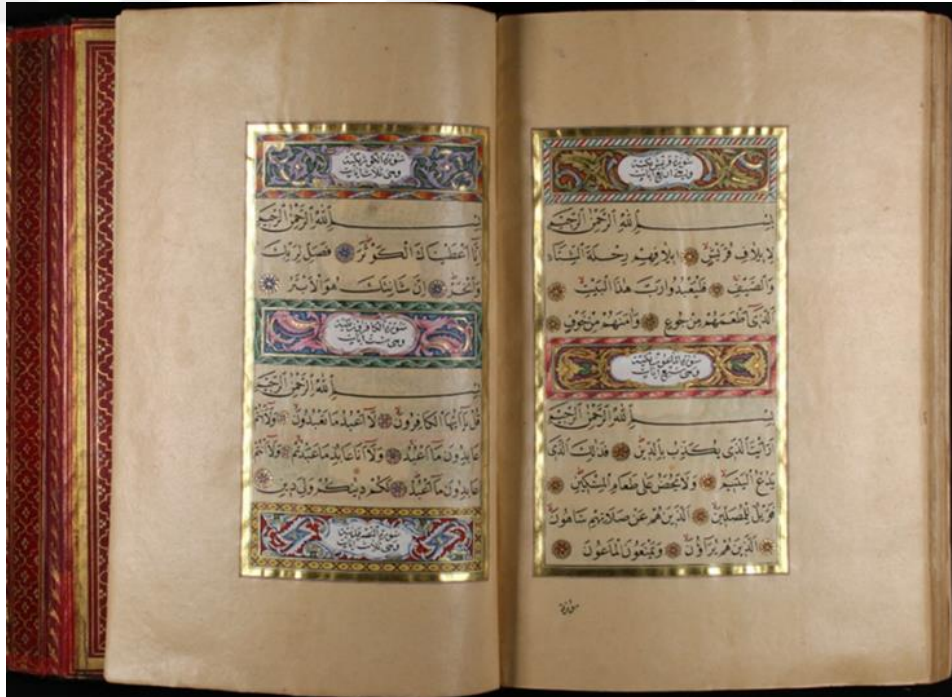 سورة قريش مكية
وهي اربع ايات
بسم الله الرحمن الرحيم
لايلاف قريش ايلافهم رحلة الشتاء
والصيف فليعبدوا رب هذا البيت
الذي اطعمهم من جوع وامنهم من خوف
سورة الماعون مكية
وهي سبع ايات
بسم الله الرحمن الرحيم
ارايت الذي يكذب بالدين فذلك الذي
يدع اليتيم ولا يحض على طعام المسكين
فويل للمصلين الذين هم عن صلاتهم ساهون
الذين هم يراؤن ويمنعون الماعون
سورة الكوثر مكية
وهي ثلاث ايات
بسم الله الرحمن الرحيم
انا اعطيناك الكوثر فصل لربك
وانحر ان شانئك هو الابتر
سورة الكافرون مكية
وهي ست ايات
بسم الله الرحمن الرحيم
قل يا ايها الكافرون لا اعبد ما تعبدون ولا انتم
عابدون ما اعبد ولا انا عابد ما عبدتم ولا انتم
عابدون ما اعبد لكم دينكم ولي دين
سورة النصر مدنية
وهي ثلاث ايات